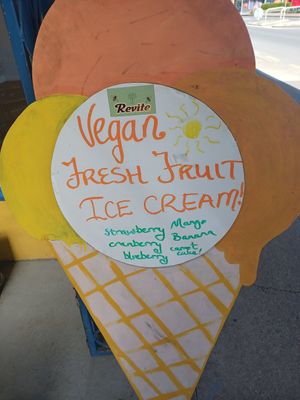 Revite
Vegan
FRESH FRUIT
ICE CREAM!
Strawberry Mango
cranberry Banana
blueberry carrot cake!